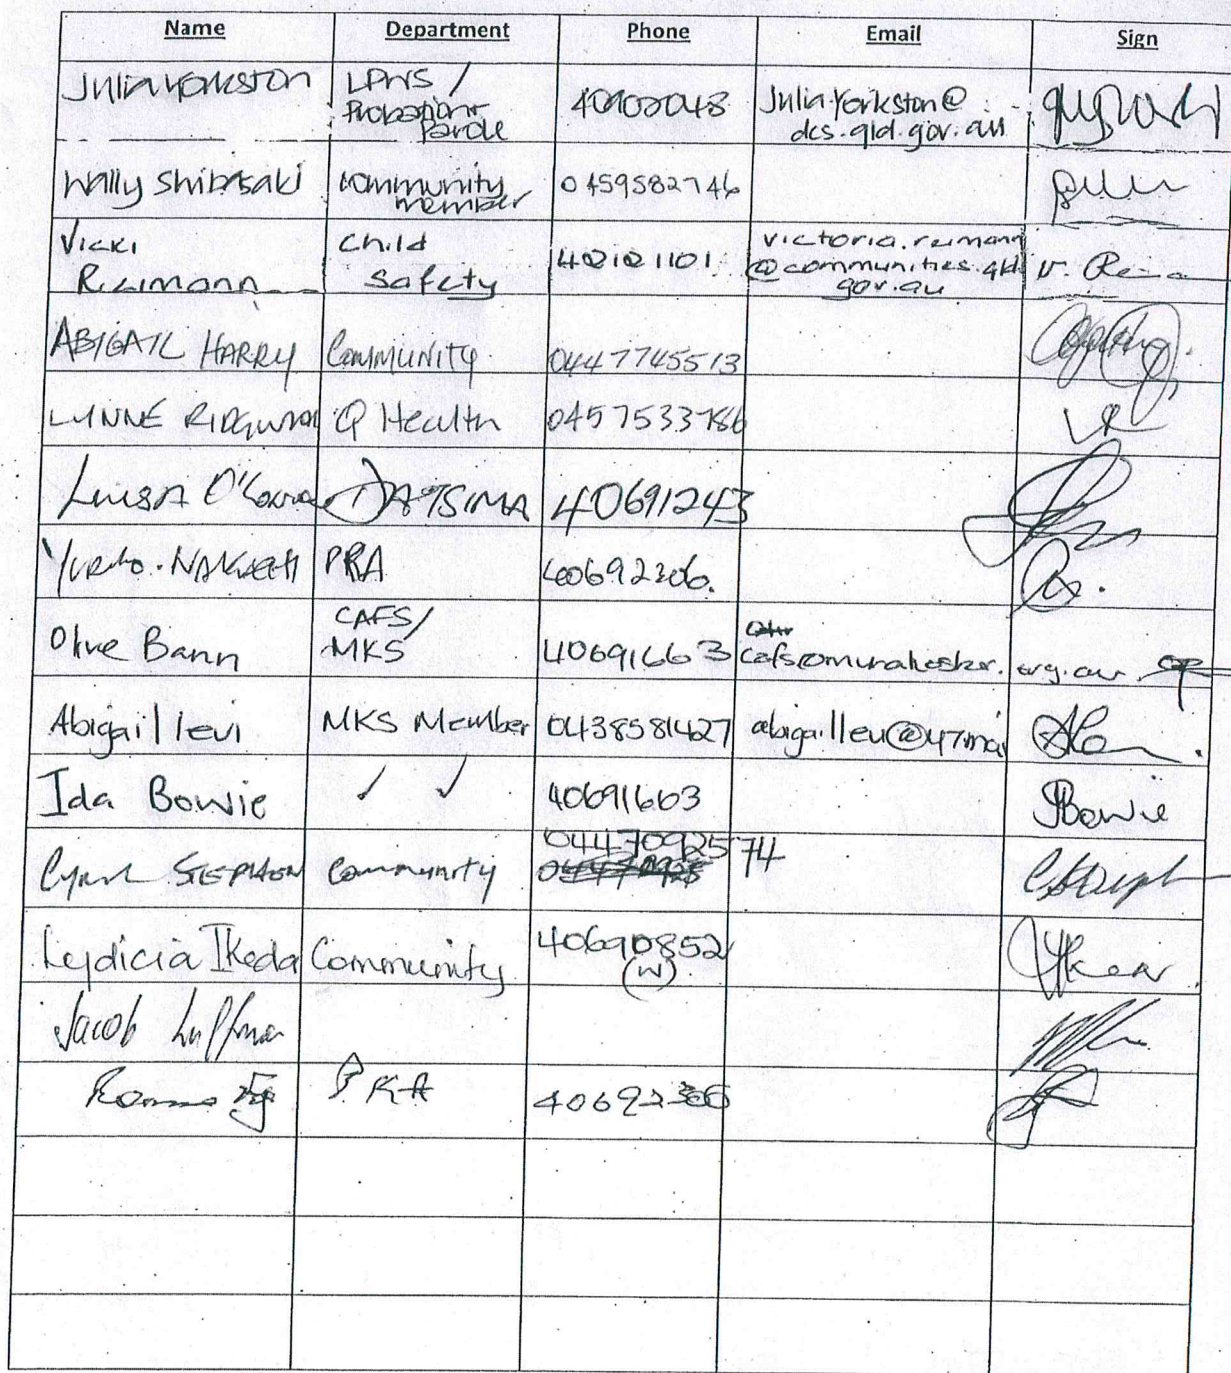 Name Department Phone Email Sign
Julia Yorkston LPWS / Probation + Parole 40902048 Julia.Yorkston@dcs.qld.gov.au
Wally Shibasaki Community member 0459582746
Vicki Reimann Child Safety 40121101 victoria.reimann@communities.qld.gov.au V. Rei
ABIGAIL HARRY Community 0447745513
LYNNE RIDGWAY Q Health 0457533786 LR
Luisa DATSIMA 40691243
PRA 40692306.
Olive Bann CAFS/ MKS 40691663 org.au
Abigail levi MKS Member 0438581427
Ida Bowie ✓ ✓ 40691663 Bowie
STEPHEN Community 0447092574
Leydicia Ikeda Community 40690852 (w)
Jacob
40692306